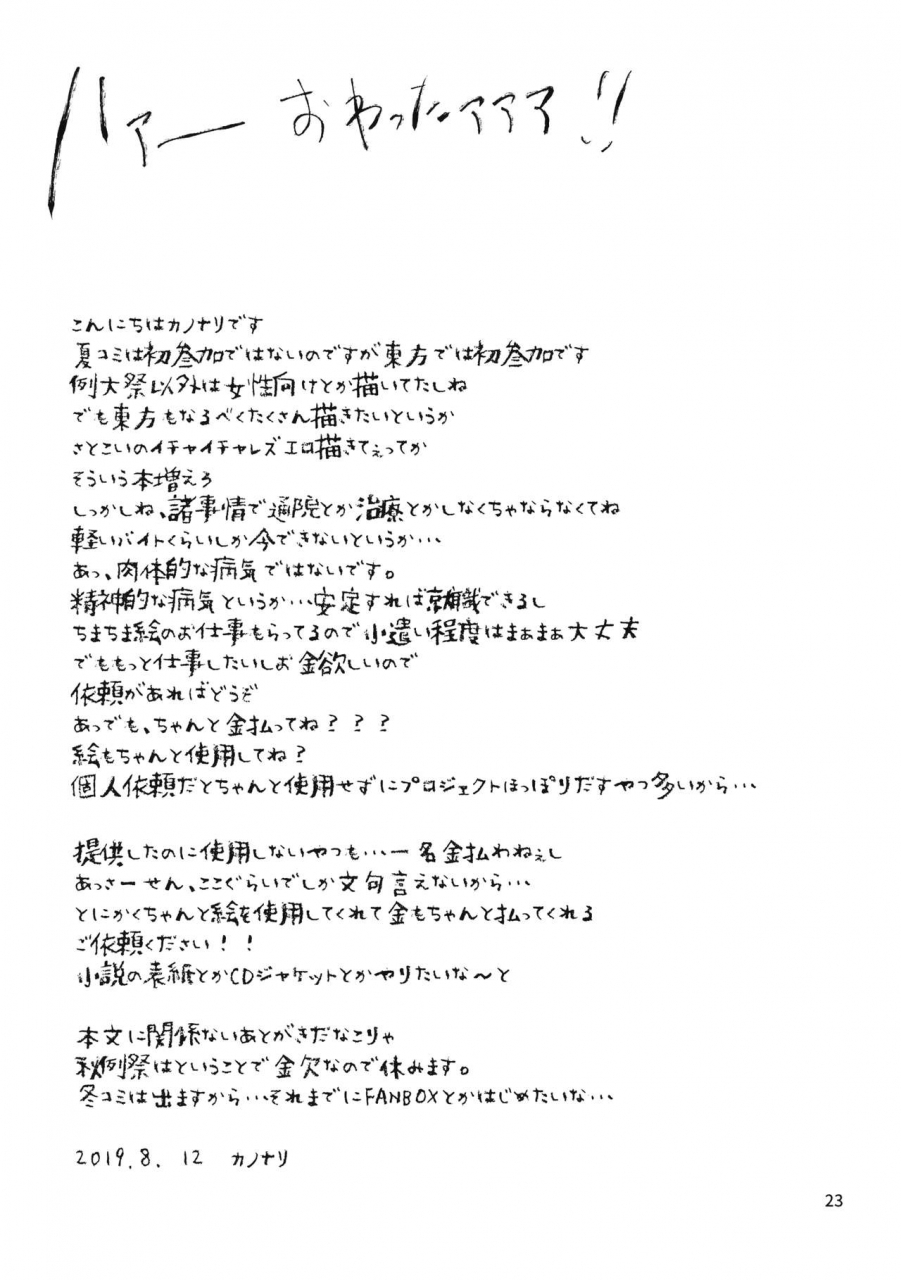 ハァー おわったアアア!!
こんにちはカノナリです
夏コミは初参加ではないのですが東方では初参加です
例大祭以外は女性向けとか描いてたしね
でも東方もなるべくたくさん描きたいというか
さとこいのイチャイチャレズエロ描きてぇってか
そういう本増えろ
しっかしね、諸事情で通院とか治療とかしなくちゃならなくてね
軽いバイトくらいしか今できないというか…
あっ、肉体的な病気ではないです。
精神的な病気というか…安定すれば就職できるし
ちまちま絵のお仕事もらってるので小遣い程度はまぁまぁ大丈夫
でももっと仕事したいしお金欲しいので
依頼があればどうぞ
あっでも、ちゃんと金払ってね???
絵もちゃんと使用してね?
個人依頼だとちゃんと使用せずにプロジェクトほっぽりだすやつ多いから…
提供したのに使用しないやつも…一名金払わねぇし
あっさーせん、ここぐらいでしか文句言えないから…
とにかくちゃんと絵を使用してくれて金もちゃんと払ってくれる
ご依頼ください!!
小説の表紙とかCDジャケットとかやりたいな〜と
本文に関係ないあとがきだなこりゃ
秋例祭はということで金欠なので休みます。
冬コミは出ますから…それまでにFANBOXとかはじめたいな…
2019.8.12 カノナリ
23